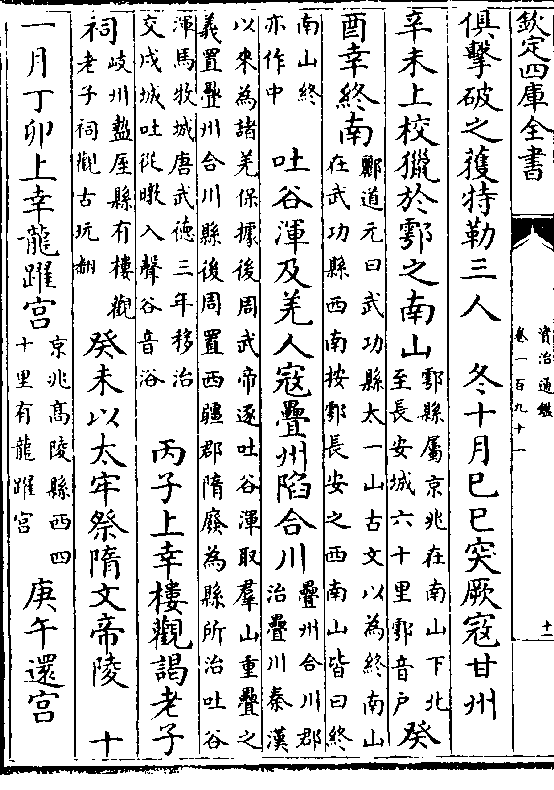 欽定四庫全書
資治通鑑
卷一百九十一
十一
俱擊破之獲特勒三人　冬十月己巳突厥寇甘州
辛未上校獵於鄠之南山
鄠縣屬京兆在南山下北
至長安城六十里鄠音户
癸
酉幸終南
鄭道元曰武功縣太一山古文以為終南山
在武功縣西南按鄠長安之西南山皆曰終
南山終
亦作中
吐谷渾及羌人寇疊州陷合川
疊州合川郡
治疊川秦漢
以來為諸羌保據後周武帝逐吐谷渾取羣山重疊之
義置疊州合川縣後周置西疆郡隋廢為縣所治吐谷
渾馬牧城唐武德三年移治
交戍城吐從暾入聲谷音浴
丙子上幸樓觀謁老子
祠
岐州盩厔縣有樓觀
老子祠觀古玩翻
癸未以太牢祭隋文帝陵　十
一月丁卯上幸龍躍宫
京兆髙陵縣西四
十里有龍躍宫
庚午還宫